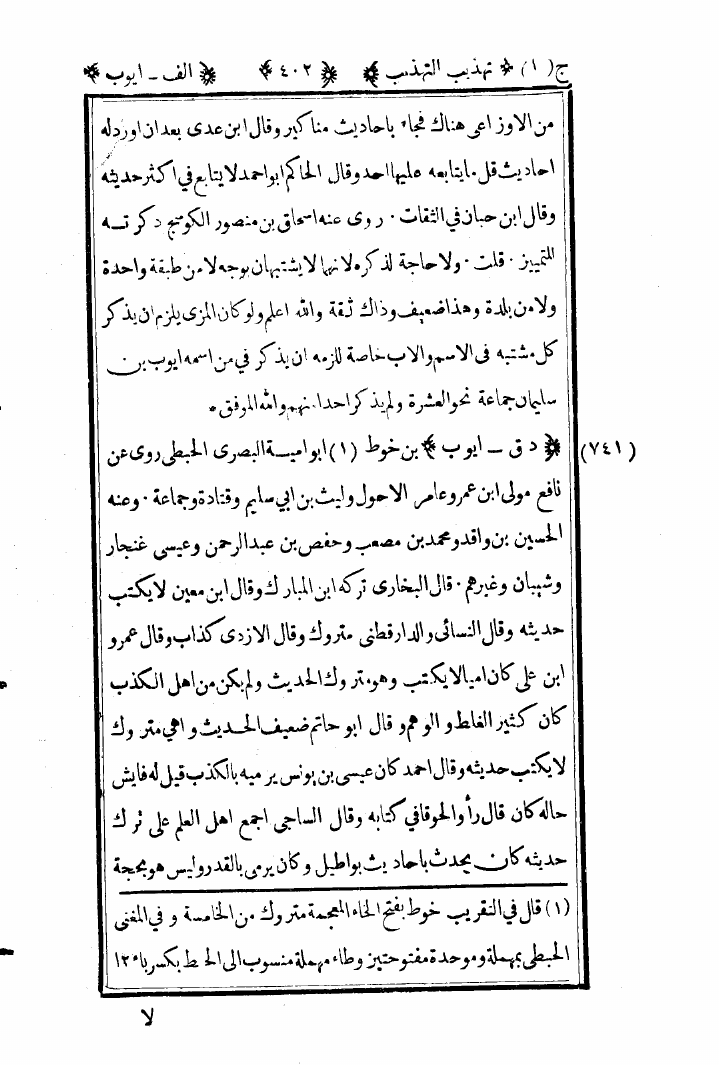 ج(١) ﴿ تهذيب التهذيب ﴾ ﴿ ٤٠٢ ﴾ ﴿ الف - ايوب ﴾
من الاوزاعى هناك فجاء باحاديث مناكير وقال ابن عدى بعد ان اورد له
احاديث قل ما يتابعه عليها احد وقال الحاكم ابو احمد لا يتابع في اكثر حديثه
وقال ابن حبان في الثقات · روى عنه اسحاق بن منصور الكوسج ذكرته
للتمييز · قلت · ولا حاجة لذكره لانهما لا يشتبهان بوجه لا من طبقة واحدة
ولا من بلدة وهذا ضعيف وذاك ثقة والله اعلم ولو كان المزى يلزم ان يذكر
كل مشتبه فى الاسم والاب خاصة للزمه ان يذكر في من اسمه ايوب بن
سليمان جماعة نحو العشرة ولم يذكر احدا منهم والله الموفق ٠
(٧٤١) ﴿ د ق - ايوب ﴾ بن خوط (١) ابو امية البصرى الحبطى روى عن
نافع مولى ابن عمر وعامر الاحول وليث بن ابي سليم وقتادة وجماعة · وعنه
الحسين بن واقد ومحمد بن مصعب وحفص بن عبد الرحمن وعيسى غنجار
وشيبان وغيرهم · قال البخارى تركه ابن المبارك وقال ابن معين لا يكتب
حديثه وقال النسائى والدارقطنى متروك وقال الازدى كذاب وقال عمرو
ابن على كان اميا لا يكتب وهو متروك الحديث ولم يكن من اهل الكذب
كان كثير الغلط والوهم وقال ابو حاتم ضعيف الحديث واهي متروك
لا يكتب حديثه وقال احمد كان عيسى بن يونس يرميه بالكذب قيل له فايش
حاله كان قال رأوا الحوقا في كتابه وقال الساجى اجمع اهل العلم على ترك
حديثه كان يحدث باحاديث بواطيل وكان يرمى بالقدر وليس هو بحجة
(١) قال في التقريب خوط بفتح الخاء المعجمة متروك من الخامسة و في المغنى
الحبطى بمهملة وموحدة مفتوحتين وطاء مهملة منسوب الى الحبط بكسر باء ١٢
لا